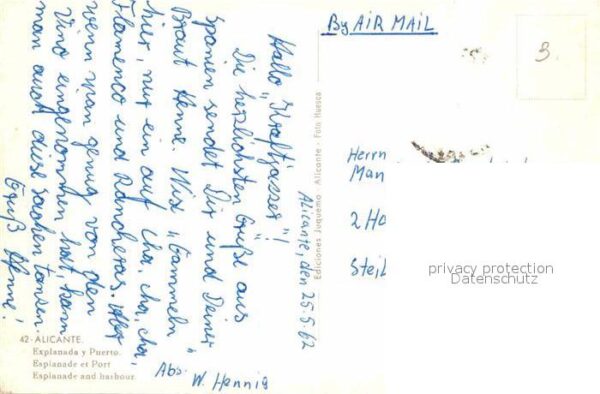 By AIR MAIL
3
Alicante, den 25.5.62
Hallo "Kraftjasser"!
Die herzlichsten Grüße aus
Spanien sendet Dir und Deiner
Braut Henne. Wir "Gammeln"
hier, nur ein auf Cha, cha, cha,
Flamenco und Rancheras. Aber
wenn man genug von den
Vino eingenommen hat, kann
man auch diese Sachen tanzen.
Gruß Henne!
Abs. W. Hennig
Herrn
Man
2 Ha
Steil
42 - ALICANTE.
Explanada y Puerto.
Esplanade et Port
Esplanade and harbour.
Ediciones Juquemo - Alicante - Foto Huesca
privacy protection
Datenschutz